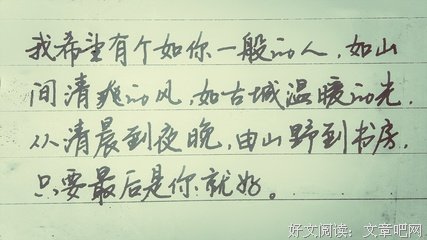 我希望有个如你一般的人，如山
间清爽的风，如古城温暖的光，
从清晨到夜晚，由山野到书房，
只要最后是你就好。
好文阅读：文章吧网